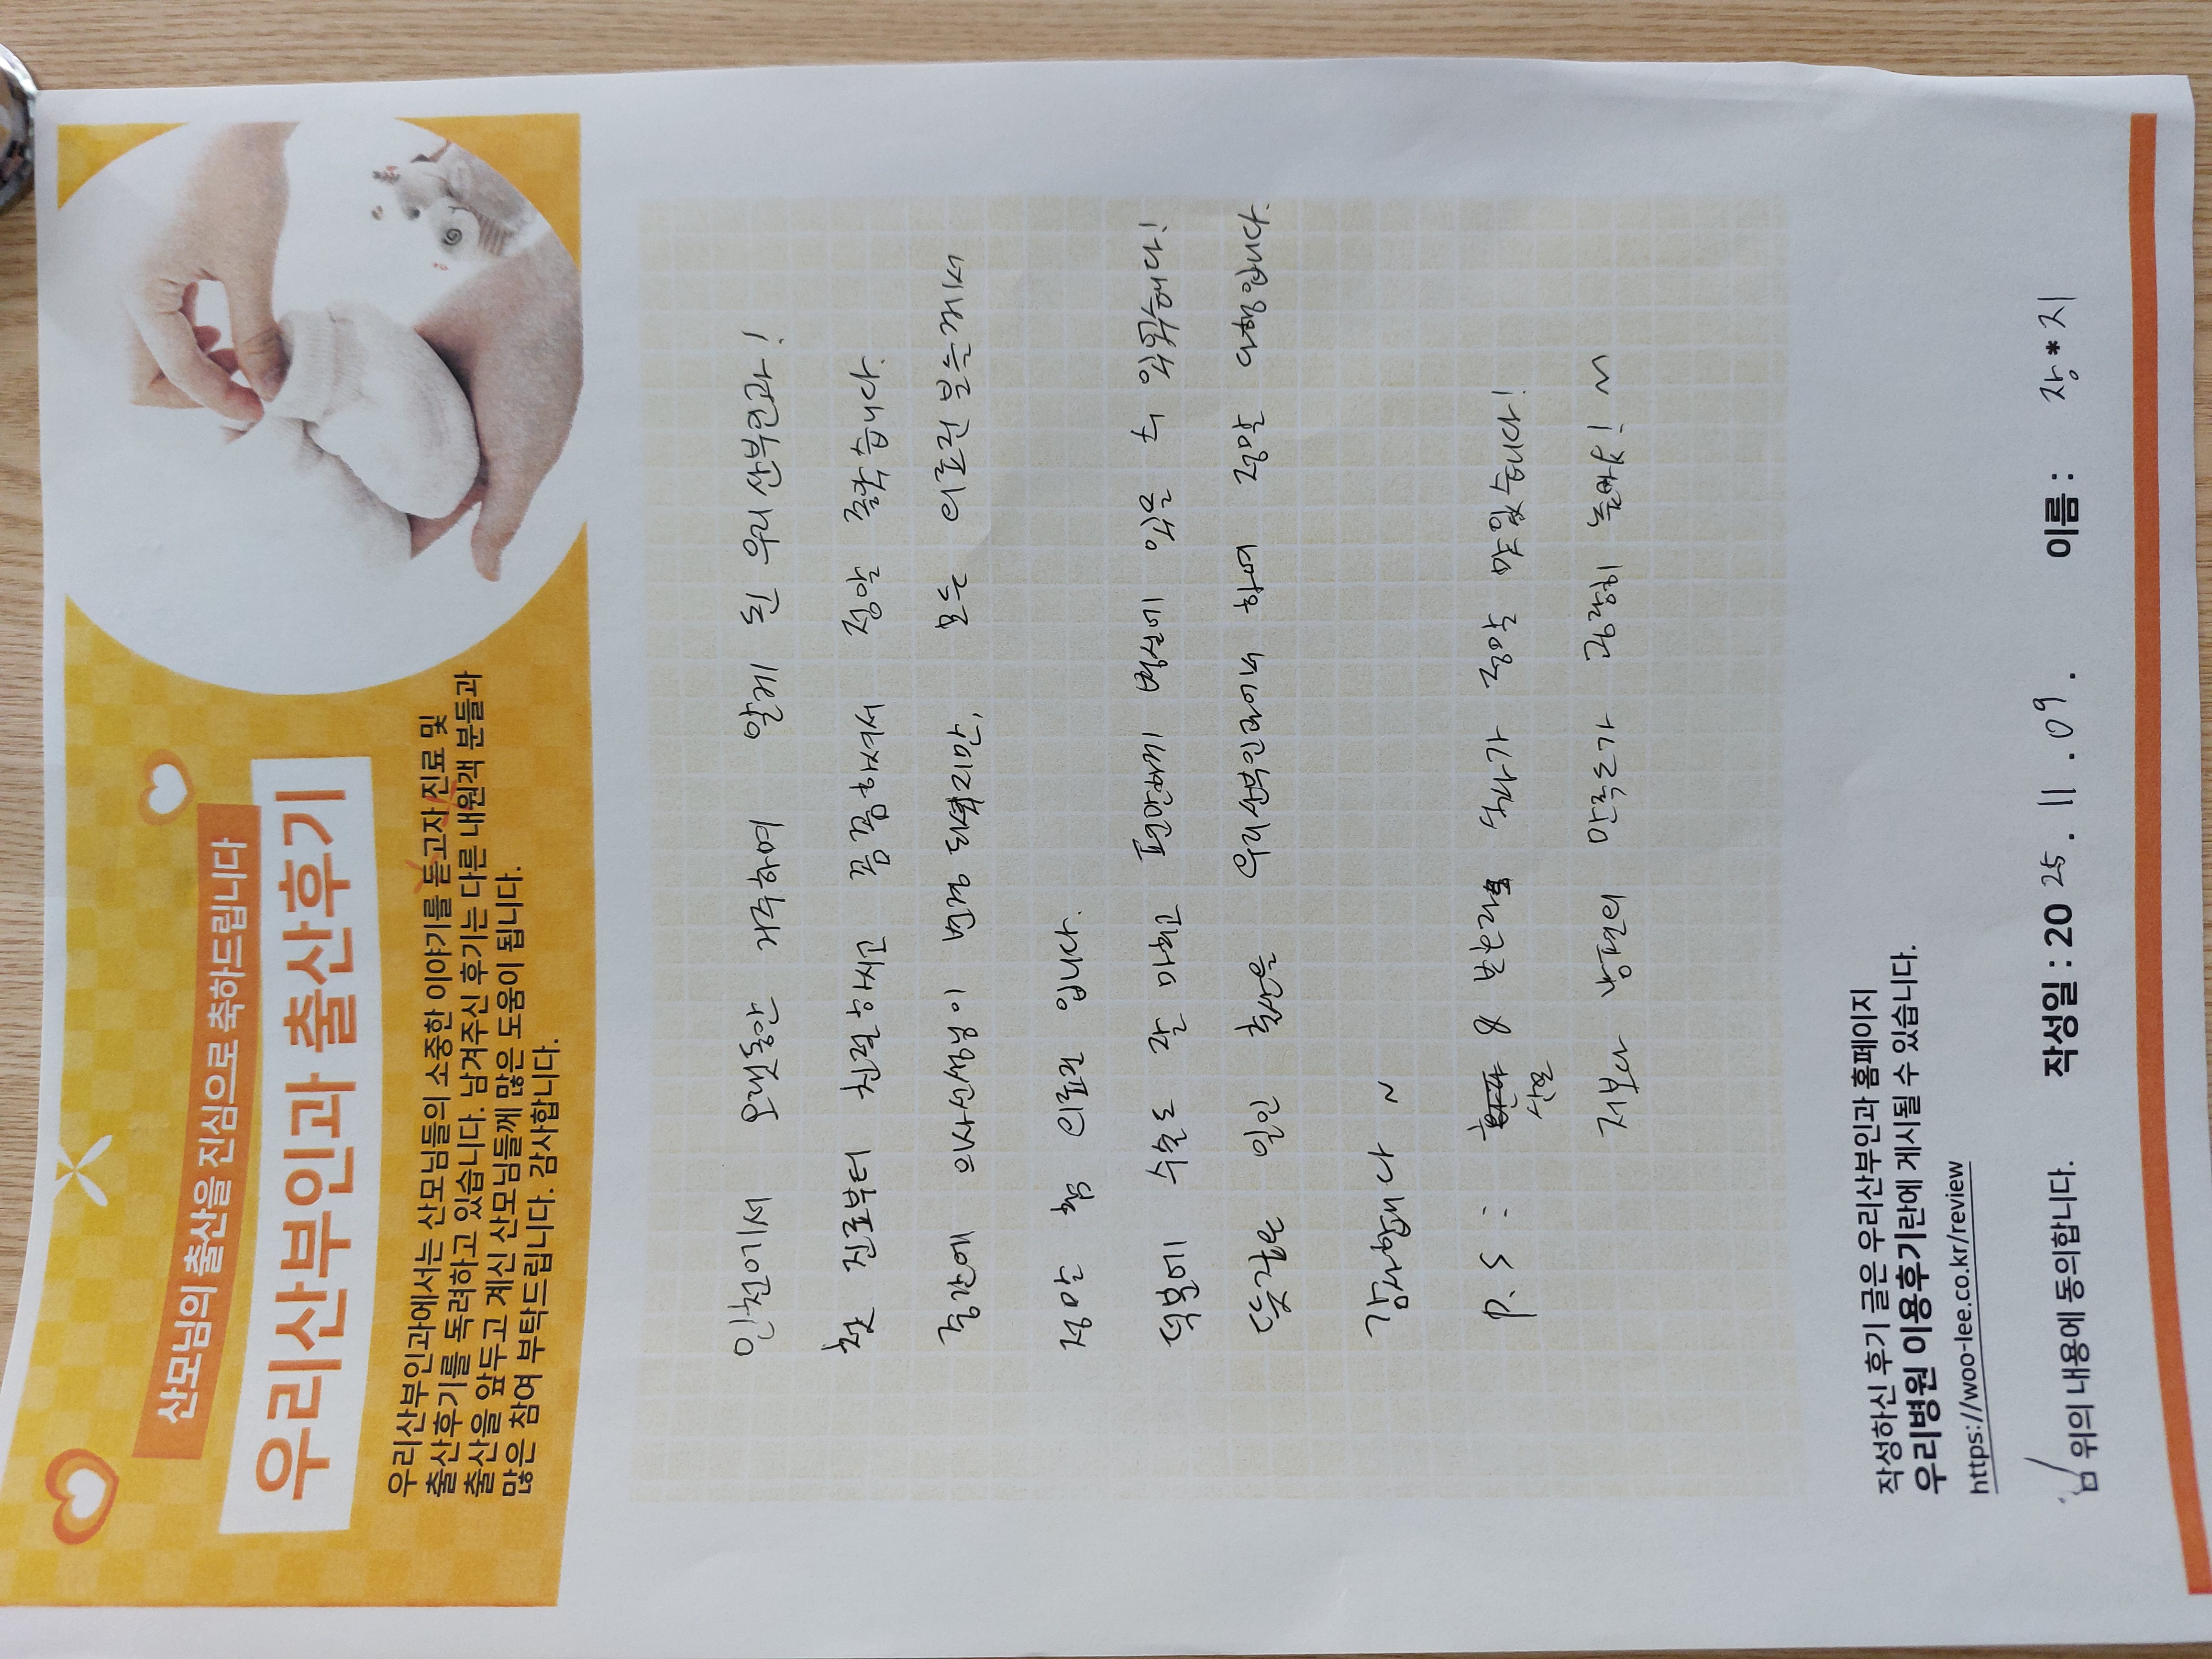 산모님의 출산을 진심으로 축하드립니다
우리산부인과 출산후기
우리산부인과에서는 산모님들의 소중한 이야기를 듣고자 진료 및
출산후기를 독려하고 있습니다. 남겨주신 후기는 다른 내원객 분들과
출산을 앞두고 계신 산모님들께 많은 도움이 됩니다.
많은 참여 부탁드립니다. 감사합니다.
인천에서 오랫동안 거주하며 알게 된 우리산부인과!
첫 진료부터 친절하시고 꼼꼼하셔서 정말 좋았습니다.
중간에 의사선생님이 변경 되셨지만, 모든 의료진분들께서
정말 찐 의료진 입니다.
덕분에 수술도 잘 마치고 편안하게 병실에 있을 수 있었습니다!
뜻깊은 일인 출산을 우리산부인과에서 하여 정말 다행입니다.
감사합니다 ~
P.S : & 분은 식사가 정말 맛있습니다!
산모
저보다 남편의 만족도가 굉장히 높아요! ~
작성하신 후기 글은 우리산부인과 홈페이지
우리병원 이용후기란에 게시될 수 있습니다.
https://woo-lee.co.kr/review
위의 내용에 동의합니다. 작성일 : 20 25 . 11 . 09 . 이름 : 장*지